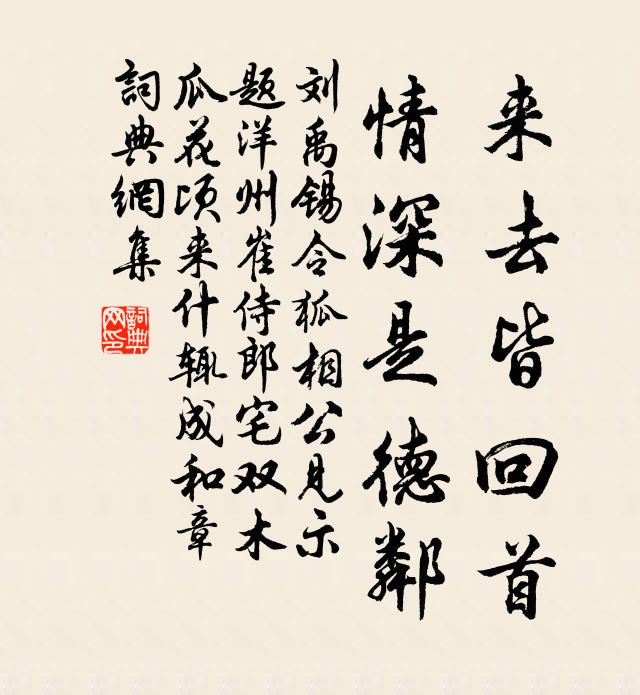 来去皆回首
情深是德鄰
刘禹锡令狐相公見示
题洋州崔侍郎宅双木
瓜花顷来什辄成和章
詞典網集
詞典网印